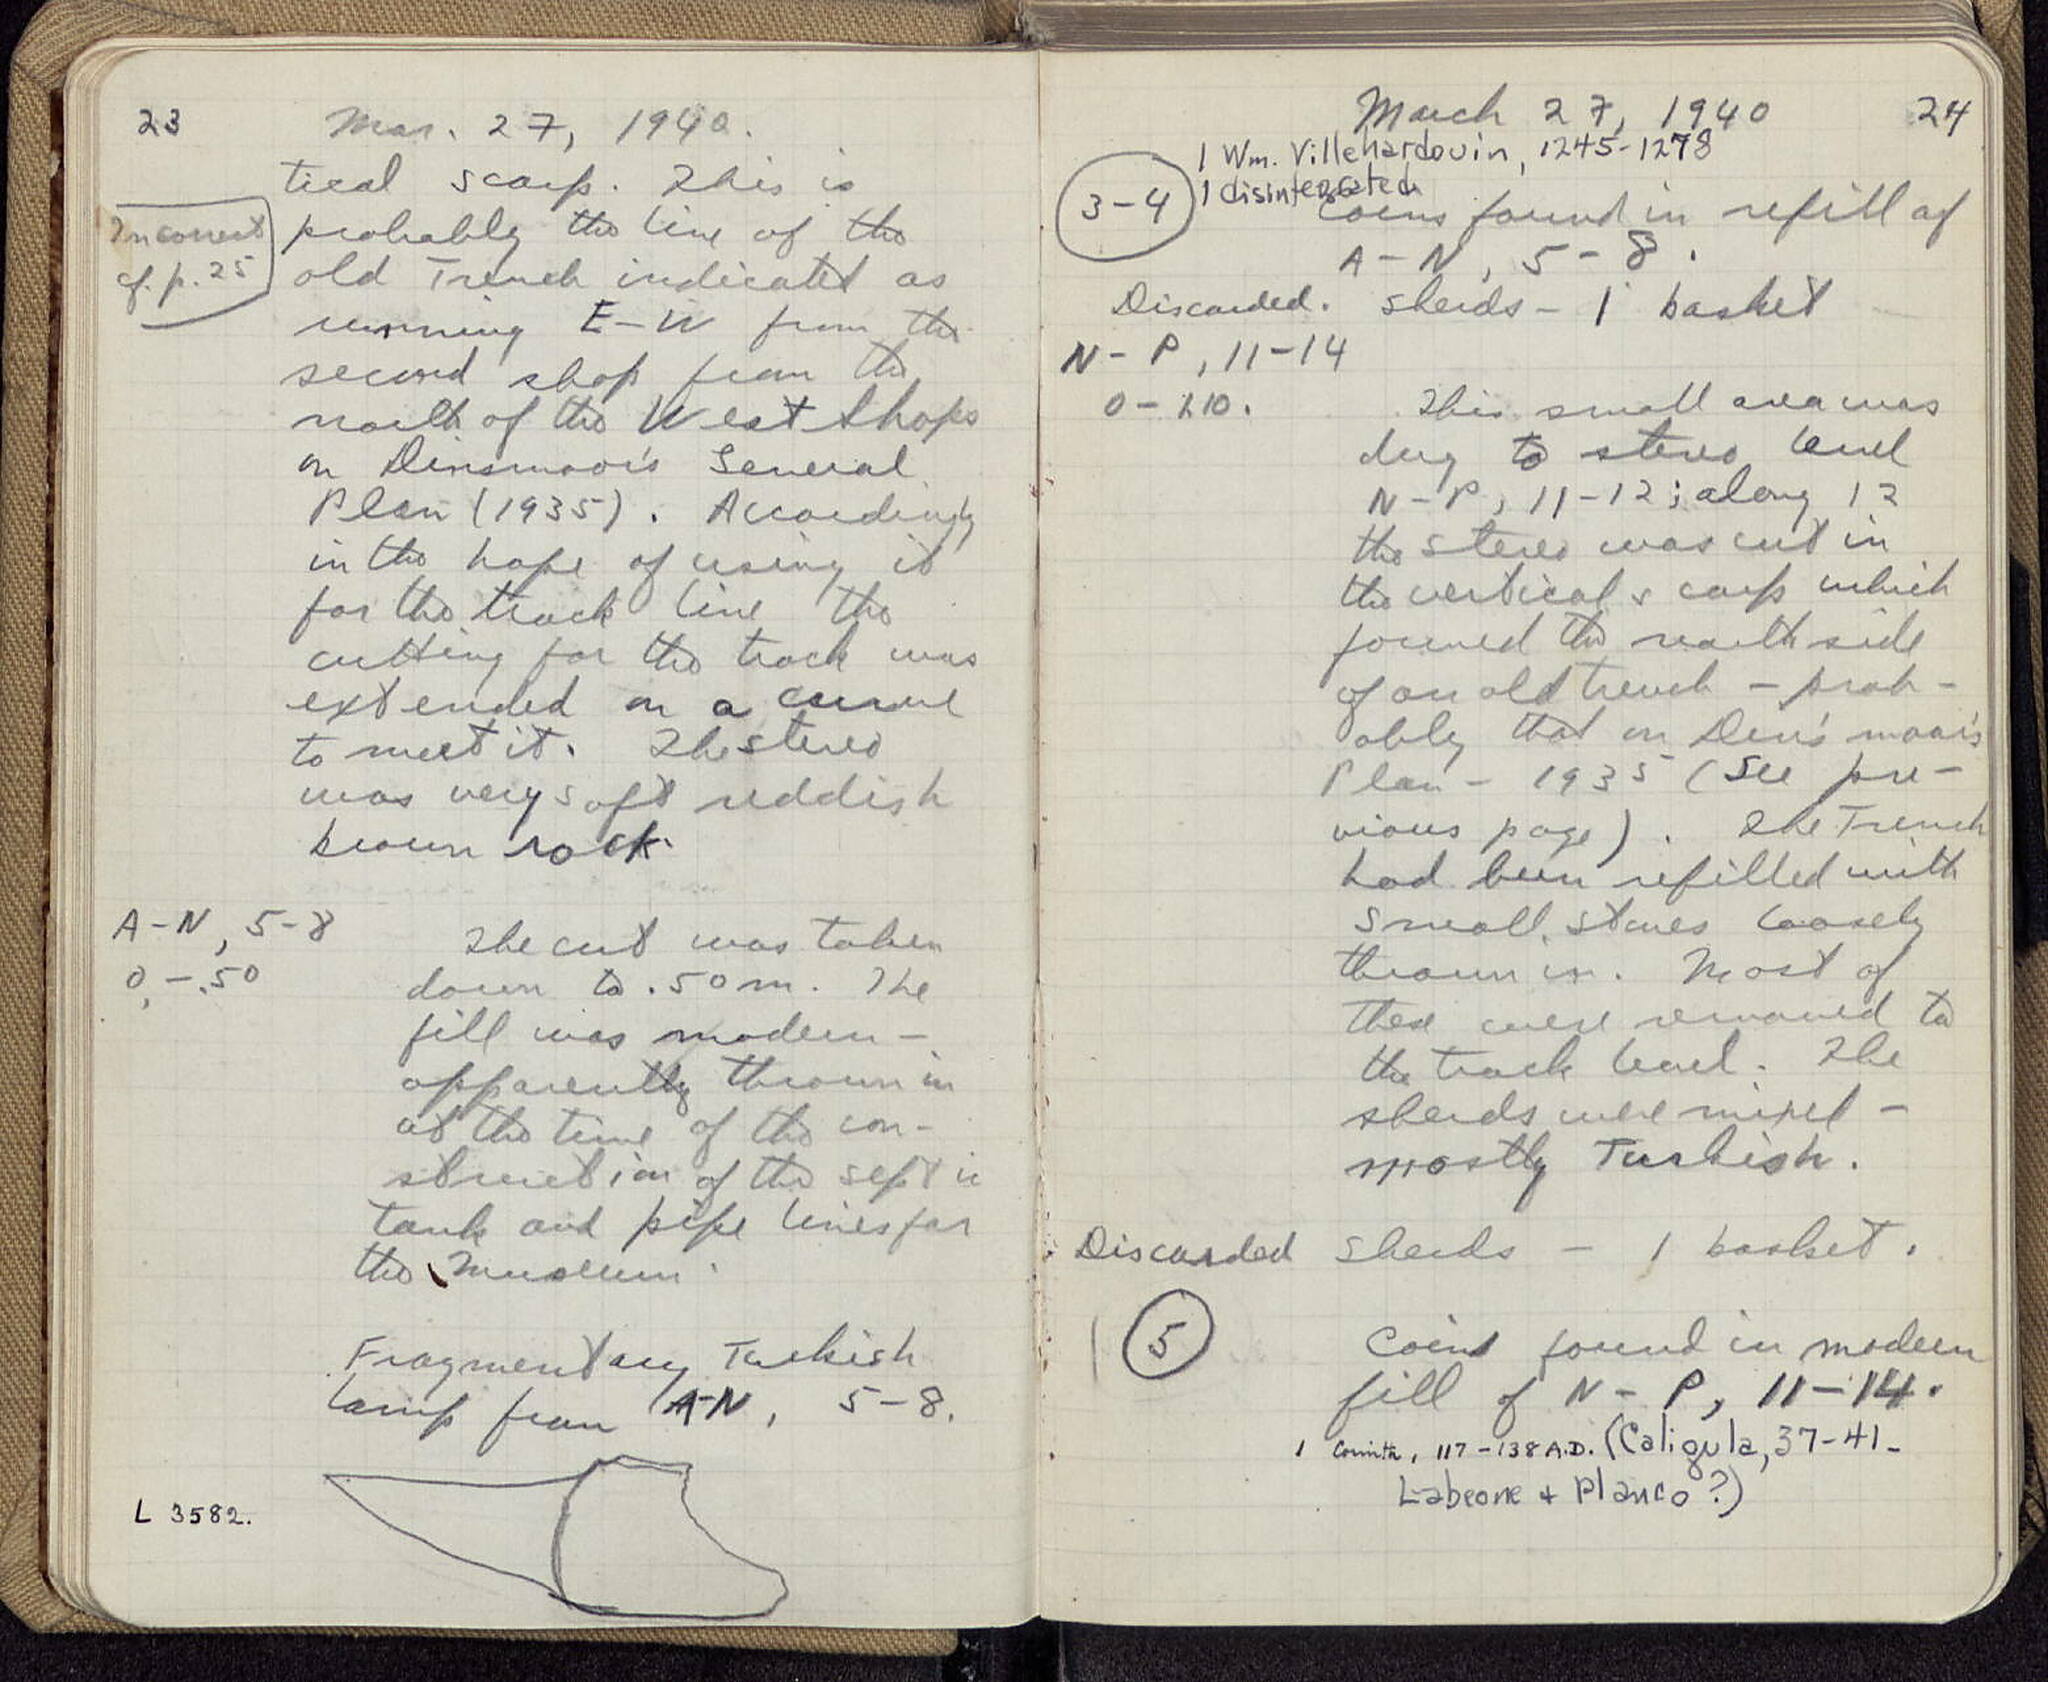 23
Mar. 27, 1940.
tical scarp. This is
Incorrect
cf. p. 25
probably the line of the
old Trench indicated as
running E-W from the
second shop from the
north of the West Shops
on Dinsmoor's General
Plan (1935). Accordingly
in the hope of using it
for the track line the
cutting for the track was
extended on a curve
to meet it. The stereo
was very soft reddish
brown rock.
A-N, 5-8
0,-.50
The cut was taken
down to .50 m. The
fill was modern -
apparently thrown in
at the time of the con-
struction of the septic
tank and pipe lines for
the Museum.
Fragmentary Turkish
lamp from A-N, 5-8.
L 3582.
March 27, 1940
24
1 Wm. Villehardouin, 1245-1278
1 disintegrated
3-4
coins found in refill of
A-N, 5-8.
Discarded. Sherds - 1 basket
N-P, 11-14
This small area was
dug to stereo level
N-P, 11-12; along 12
the stereo was cut in
the vertical scarp which
formed the north side
of an old trench - prob-
ably that on Dinsmoor's
Plan - 1935 (See pre-
vious page). The Trench
had been refilled with
small stones loosely
thrown in. Most of
these were removed to
the track level. The
sherds were mixed -
mostly Turkish.
Discarded Sherds - 1 basket.
1 5
Coins found in modern
fill of N-P, 11-14.
1 Corinth, 117-138 A.D. (Caligula, 37-41-
Labeone + Planco?)